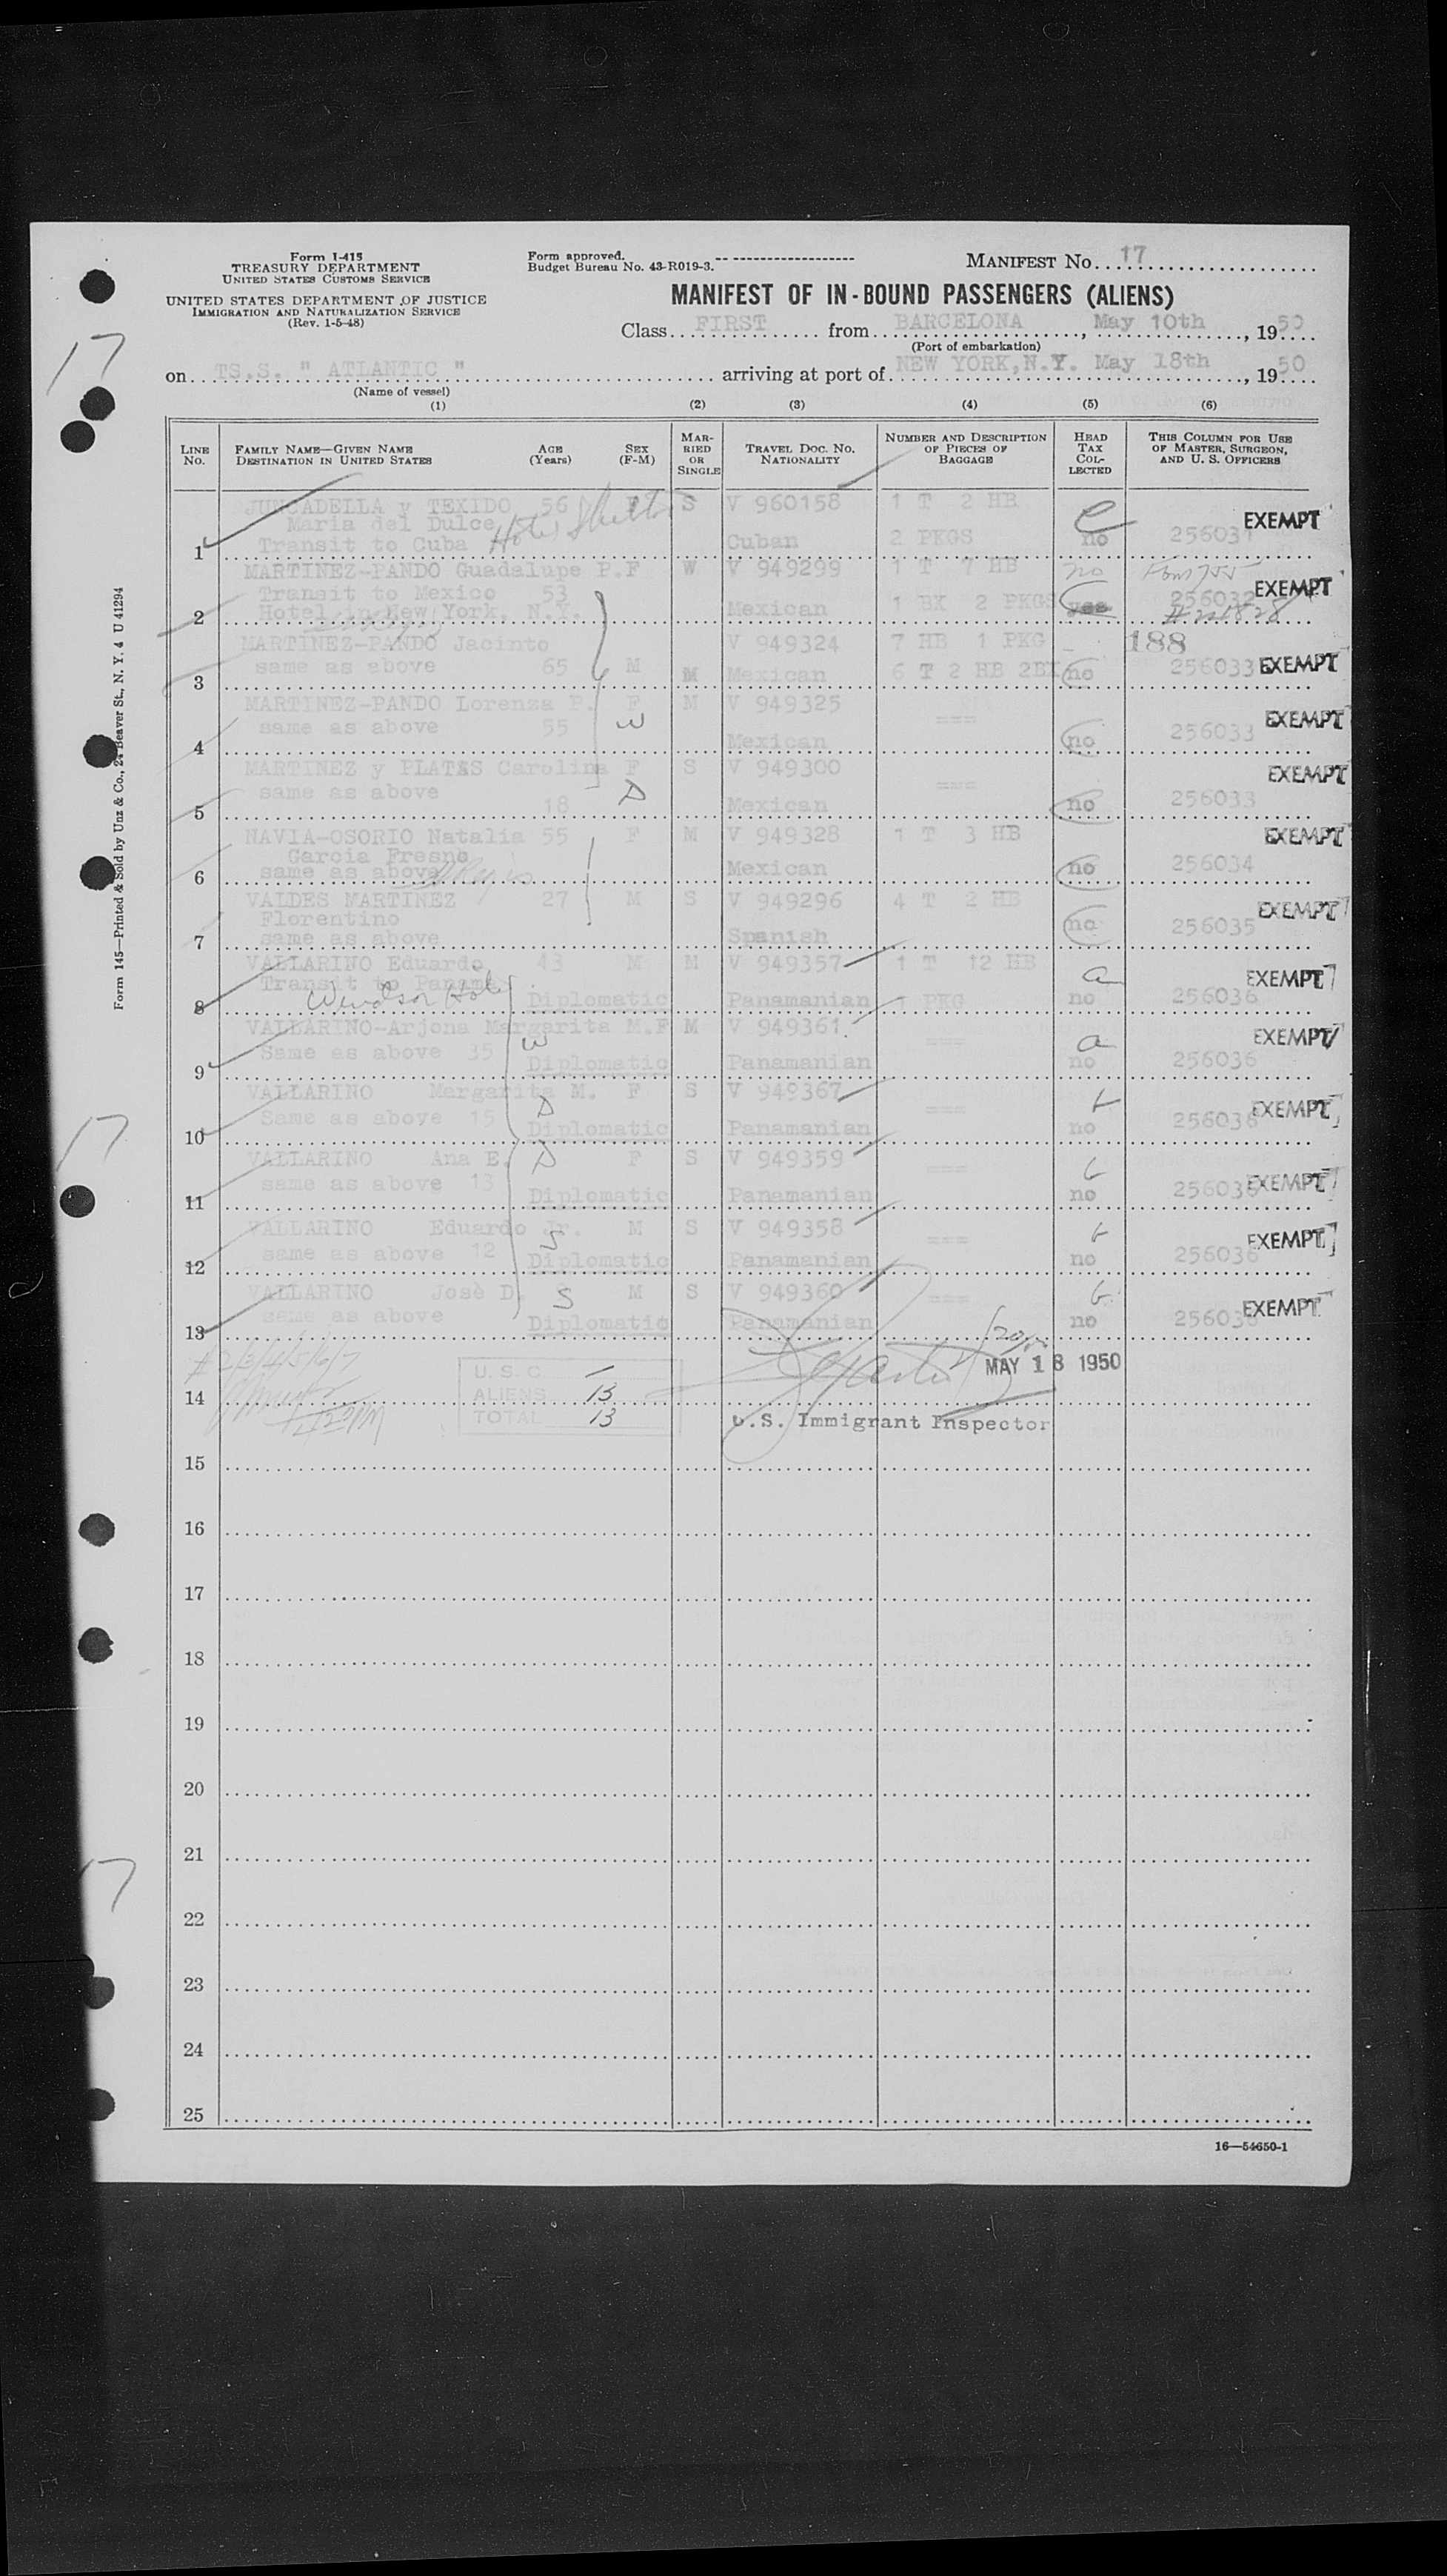 Form I-415
TREASURY DEPARTMENT
UNITED STATES CUSTOMS SERVICE
UNITED STATES DEPARTMENT OF JUSTICE
IMMIGRATION AND NATURALIZATION SERVICE
(Rev. 1-5-48)
Form approved.
Budget Bureau No. 43-R019-3.
MANIFEST NO. 17
MANIFEST OF IN-BOUND PASSENGERS (ALIENS)
Class FIRST from BARCELONA, May 10th, 1950
(Port of embarkation)
on TS.S. " ATLANTIC " arriving at port of NEW YORK, N.Y. May 18th, 1950
(Name of vessel)
(1) (2) (3) (4) (5) (6)
LINE NO. FAMILY NAME—GIVEN NAME DESTINATION IN UNITED STATES AGE (Years) SEX (F-M) MARRIED OR SINGLE TRAVEL DOC. NO. NATIONALITY NUMBER AND DESCRIPTION OF PIECES OF BAGGAGE HEAD TAX COLLECTED THIS COLUMN FOR USE OF MASTER, SURGEON, AND U. S. OFFICERS
JUNCADELLA y TEXIDO 56 F S V 960158 1 T 2 HB
Maria del Dulce EXEMPT
1 Transit to Cuba Hotel Cuban 2 PKGS no 256031
MARTINEZ-PANDO Guadalupe P. F W V 949299 1 T 7 HB no
Transit to Mexico 53 EXEMPT
2 Hotel in New York, N.Y. Mexican 1 BX 2 PKGS yes 256032
MARTINEZ-PANDO Jacinto V 949324 7 HB 1 PKG 188
3 same as above 65 M M Mexican 6 T 2 HB no 256033 EXEMPT
MARTINEZ-PANDO Lorenza P. F M V 949325 === EXEMPT
4 same as above 55 W Mexican no 256033
MARTINEZ y PLATAS Carolina F S V 949300 === EXEMPT
5 same as above 18 D Mexican no 256033
NAVIA-OSORIO Natalia 55 F M V 949328 1 T 3 HB EXEMPT
Garcia Fresno
6 same as above Mexican no 256034
VALDES MARTINEZ 27 M S V 949296 4 T 2 HB EXEMPT
Florentino
7 same as above Spanish no 256035
VALLARINO Eduardo 43 M M V 949357 1 T 12 HB a EXEMPT
Transit to Panama
8 Windsor Hotel Diplomatic Panamanian 1 PKG no 256036
VALLARINO-Arjona Margarita M. F M V 949361 === a EXEMPT
9 Same as above 35 W Diplomatic Panamanian no 256036
VALLARINO Margarita M. F S V 949367 === EXEMPT
10 Same as above 15 D Diplomatic Panamanian no 256036
VALLARINO Ana E. D F S V 949359 ===
11 same as above 13 Diplomatic Panamanian no 256036 EXEMPT
VALLARINO Eduardo Jr. M S V 949358 === EXEMPT
12 same as above 12 S Diplomatic Panamanian no 256036
VALLARINO Josè D. S M S V 949360 === EXEMPT
13 same as above Diplomatic Panamanian no 256036
#2/3/4/5/6/7
U. S. C. —
MAY 18 1950
14 ALIENS 13
TOTAL 13
U.S. Immigrant Inspector
15
16
17
18
19
20
21
22
23
24
25
16—54650-1
Form 145—Printed & Sold by Unz & Co., 24 Beaver St., N. Y. 4 U 41294
17
17
17